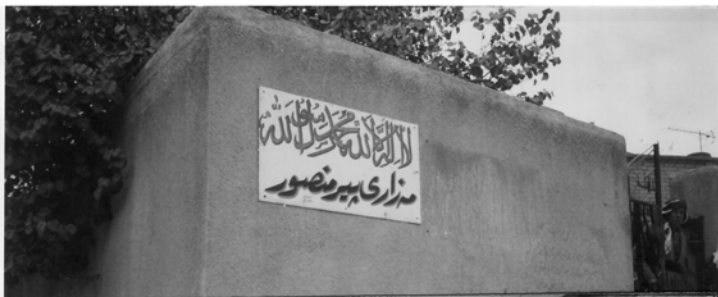 لا اله الا الله محمد رسول الله
مەزاری پیرمنصور